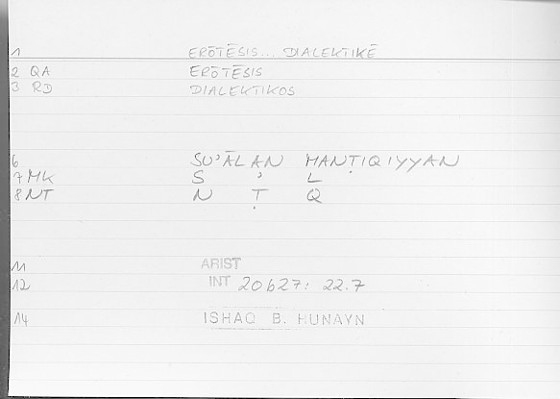 1 ERŌTĒSIS... DIALEKTIKĒ
2 QA ERŌTĒSIS
3 RD DIALEKTIKOS
6 SU'ĀLAN MANṬIQIYYAN
7 MK S ' L
8 NT N Ṭ Q
11 ARIST
12 INT 20b27: 22.7
14 ISHAQ B. HUNAYN